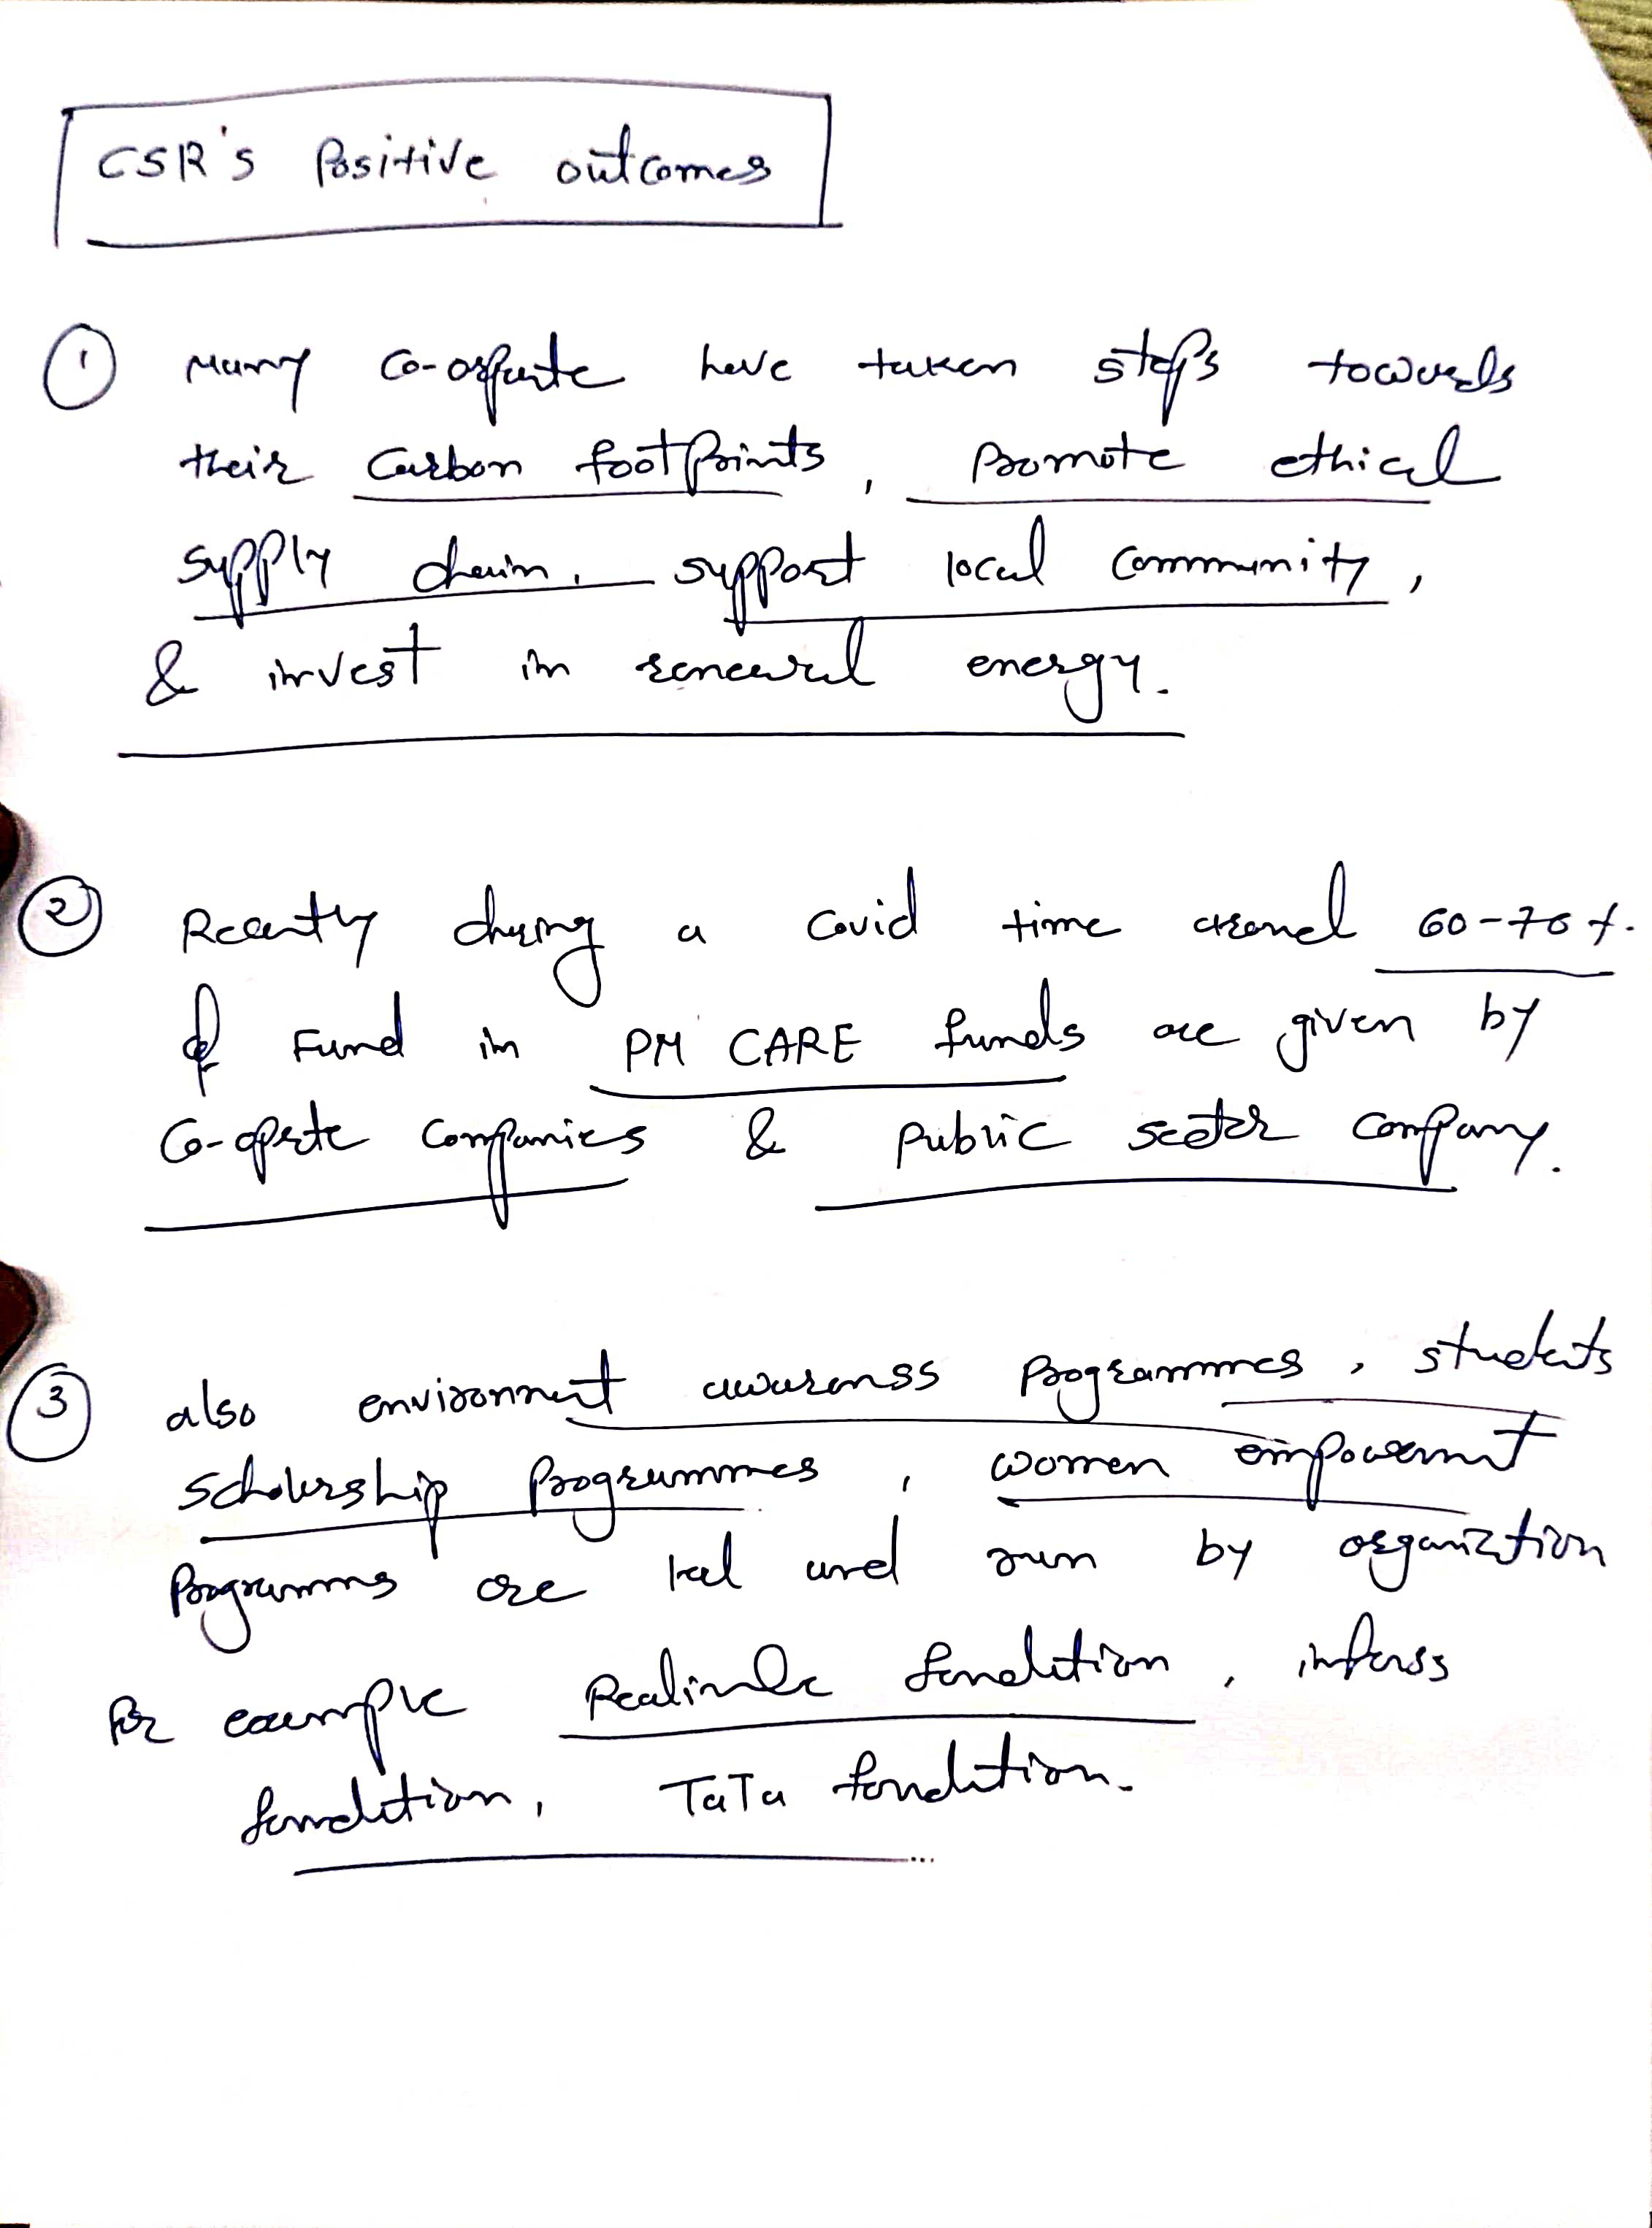 CSR's Positive outcomes
① Many Co-orporate have taken steps towards
their Carbon footprints, promote ethical
supply chain, support local community,
& invest in renewal energy.
② Recently during a Covid time around 60-70%
of Fund in PM CARE funds are given by
Co-oprte Companies & Public sector Company.
③ also environment awarenss Programmes, students
Scholership Programmes, women empowermnt
Programms are led and run by organiztion
for example Realince fondetion, infosss
fondetion, TaTa fondetion.